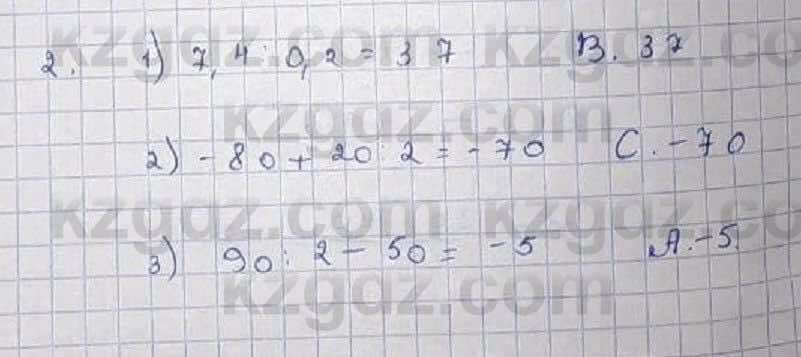 2. 1) 7,4 : 0,2 = 37 B. 37
2) - 80 + 20 : 2 = - 70 C. - 70
3) 90 : 2 - 50 = - 5 A. - 5
kzgdz.com kzgdz.com
kzgdz.com
kzgdz.com kzgdz.co
kzgdz.com